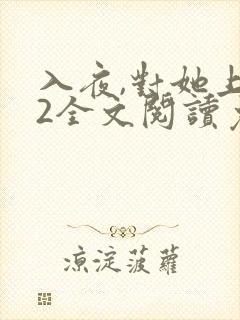 入夜,對她上
2全文閱讀
涼淀菠蘿